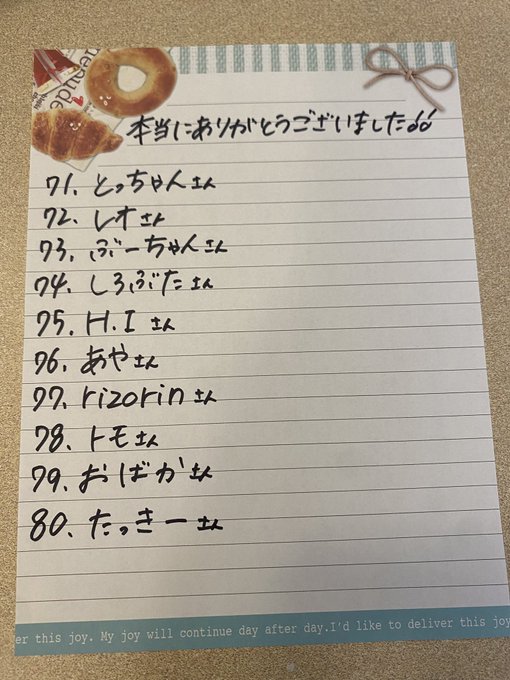 本当にありがとうございました!!
71. とっちゃんさん
72. レオさん
73. ぶーちゃんさん
74. しろぶたさん
75. H.I さん
76. あやさん
77. rizorinさん
78. トモさん
79. おばかさん
80. たっきーさん
er this joy. My joy will continue day after day.I'd like to deliver this joy